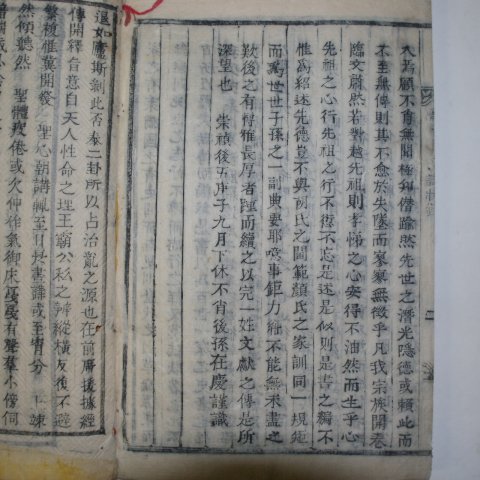 大焉顧不肖無聞極知僭踰然先世之潛光隱德或賴此而
不至無傳則其不愈於失墜而寥寥無徵乎凡我宗族開卷
臨文蔚然若對越先祖則孝悌之心安得不油然而生乎心
先祖之心行先祖之行不愆不忘是述是似則是書之編不
惟爲紹述先德豈不與
氏之閨範顔氏之家訓同一規
而爲世世子孫之一副典要耶噫事鉅力綿不能無未盡之
歎後之有得惟長厚者踵而續之以完一姓文獻之傳是所
深望也 崇禎後五庚子九月下休不肖後孫在慶謹識
退如鷹斯剝此否泰二卦所以占治亂之源也在前膺後據經
傳開釋旨意自天人性命之理王霸公私之辨縱橫反復不避
繁複惟冀開發 聖心朝講輒至日昃晝講或至宵分 上竦
然傾聽然 聖體疲倦或欠伸作氣御床戛戛有聲羣小傍伺